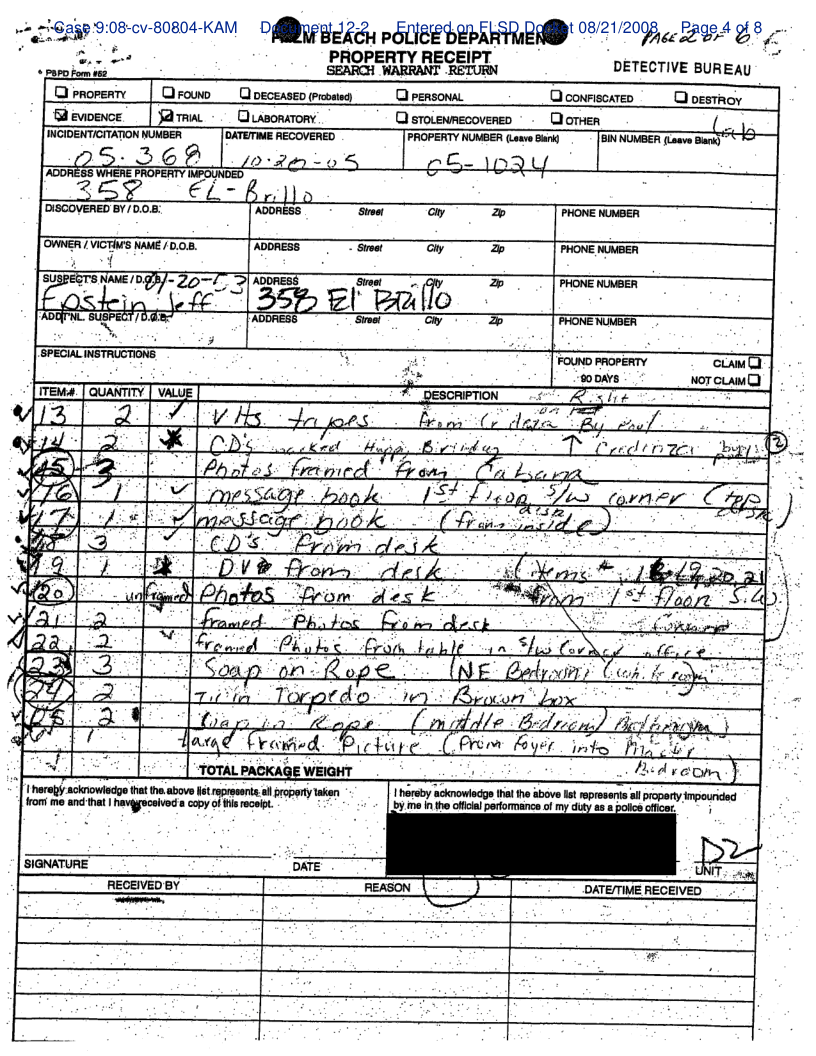 Case 9:08-cv-80804-KAM Document 12-2 Entered on FLSD Docket 08/21/2008 Page 4 of 8
PALM BEACH POLICE DEPARTMENT PAGE 2 OF 6
PROPERTY RECEIPT
SEARCH WARRANT RETURN DETECTIVE BUREAU
PBPD Form #52
PROPERTY FOUND DECEASED (Probated) PERSONAL CONFISCATED DESTROY
EVIDENCE TRIAL LABORATORY STOLEN/RECOVERED OTHER
INCIDENT/CITATION NUMBER DATE/TIME RECOVERED PROPERTY NUMBER (Leave Blank) BIN NUMBER (Leave Blank) Lab
05-368 10-20-05 05-1024
ADDRESS WHERE PROPERTY IMPOUNDED
358 EL-Brillo
DISCOVERED BY / D.O.B. ADDRESS Street City Zip PHONE NUMBER
OWNER / VICTIM'S NAME / D.O.B. ADDRESS Street City Zip PHONE NUMBER
SUSPECT'S NAME / D.O.B. 01-20-53 ADDRESS Street City Zip PHONE NUMBER
Epstein, Jeff 358 El Brillo
ADDT'NL. SUSPECT / D.O.B. ADDRESS Street City Zip PHONE NUMBER
SPECIAL INSTRUCTIONS FOUND PROPERTY CLAIM
90 DAYS NOT CLAIM
ITEM# QUANTITY VALUE DESCRIPTION Right
13 2 VHs tapes from By Pool
14 2 CD's marked Happy Birthday Credinza by 2
15 3 Photos framed from Cabana
16 1 message book 1st floor S/W corner (top desk)
17 1 message book (from inside) desk
18 3 CD's from desk
19 1 DVD from desk (items # 19, 20, 21
20 unframed Photos from desk from 1st floor S.W
21 2 framed Photos from desk Corner)
22 2 framed Photos from table in S/W Corner office
23 3 Soap on Rope (NE Bedroom)
24 2 Torpedo in Brown box
25 2 Soap on Rope (middle Bedroom) Bathroom)
26 1 Large framed Picture (from foyer into Master
Bedroom)
TOTAL PACKAGE WEIGHT
I hereby acknowledge that the above list represents all property taken
from me and that I have received a copy of this receipt.
I hereby acknowledge that the above list represents all property impounded
by me in the official performance of my duty as a police officer.
D2
SIGNATURE DATE UNIT
RECEIVED BY REASON DATE/TIME RECEIVED